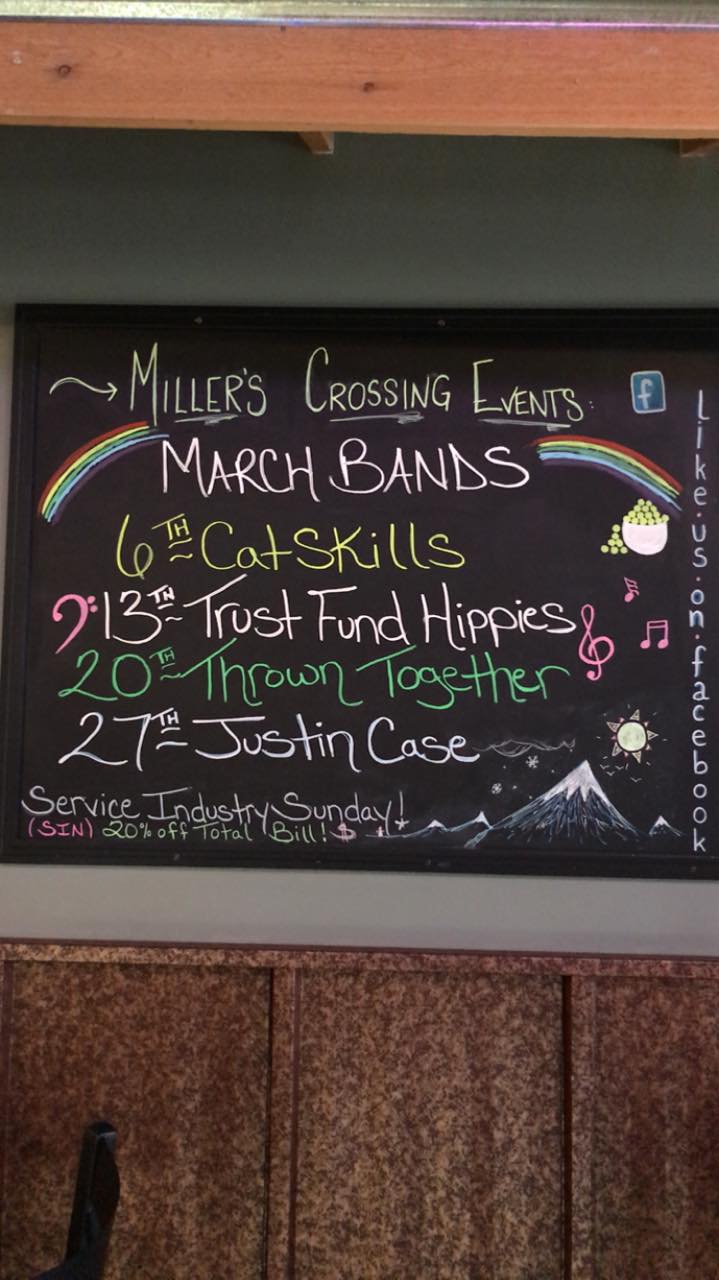 MILLER'S CROSSING EVENTS:
MARCH BANDS
6TH CatSkills
13TH Trust Fund Hippies
20TH Thrown Together
27TH Justin Case
Service Industry Sunday!
(SIN) 20% off Total Bill! $
f
Like.us.on.facebook